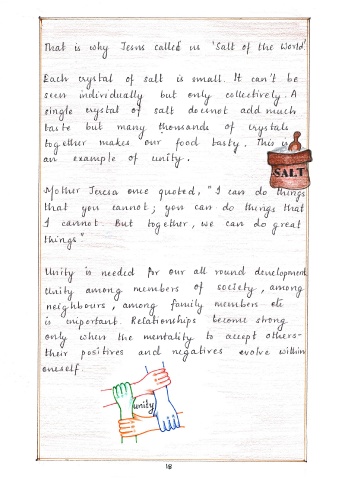 That is why Jesus called us 'Salt of the World'
Each crystal of salt is small. It can't be
seen individually but only collectively. A
single crystal of salt doesnot add much
taste but many thousands of crystals
together makes our food tasty. This is
an example of unity.
SALT
Mother Teresa once quoted, "I can do things
that you cannot; you can do things that
I cannot. But together, we can do great
things"
Unity is needed for our all round development
Unity among members of society, among
neighbours, among family members etc
is important. Relationships become strong
only when the mentality to accept others-
their positives and negatives evolve within
oneself.
unity
18